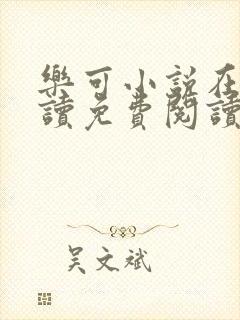 樂可小說在
讀免費閱讀
吴文斌